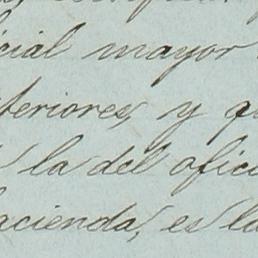 icial mayor
teriores, y q
la del ofici
acienda, es la